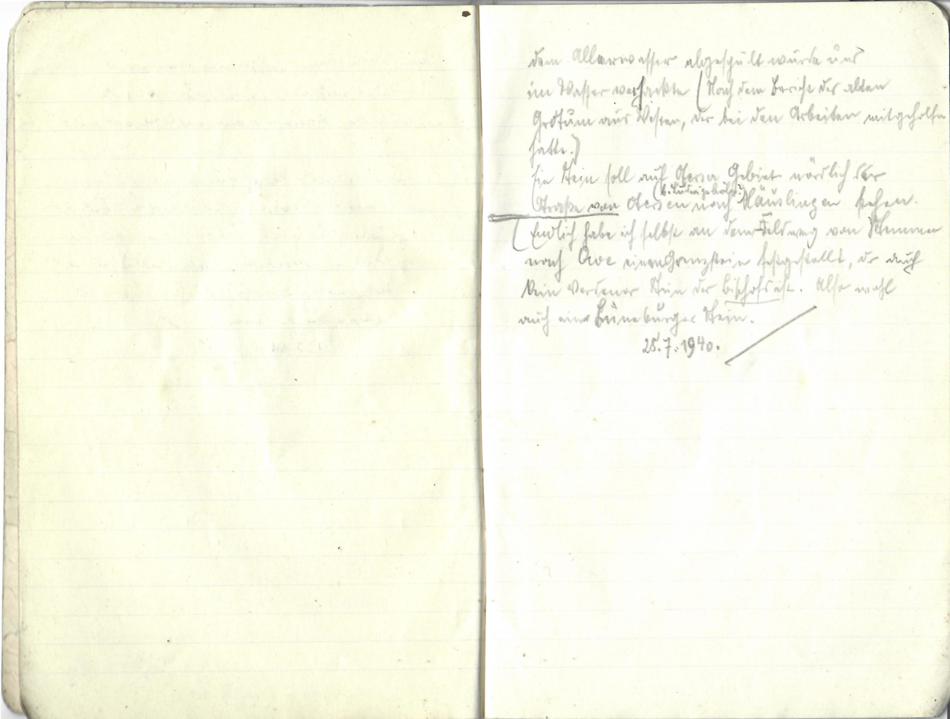 dem Allerwasser abgespült wurde und
im Wasser versackte (Nach dem Bericht des alten
Grotum aus Westen, der bei den Arbeiten mitgeholfen
hatte.)
Ein Stein soll auf Otersa Gebiet nördlich der
Straße von Otersen nach Häuslingen stehen.
(Endlich habe ich selbst an dem Feldweg von Stemmen
nach Ave einen Grenzstein festgestellt, der auch
kein Verdener Stein der Bischofs ist. Also wohl
auch eine Lüneburger Stein.
25.7.1940.